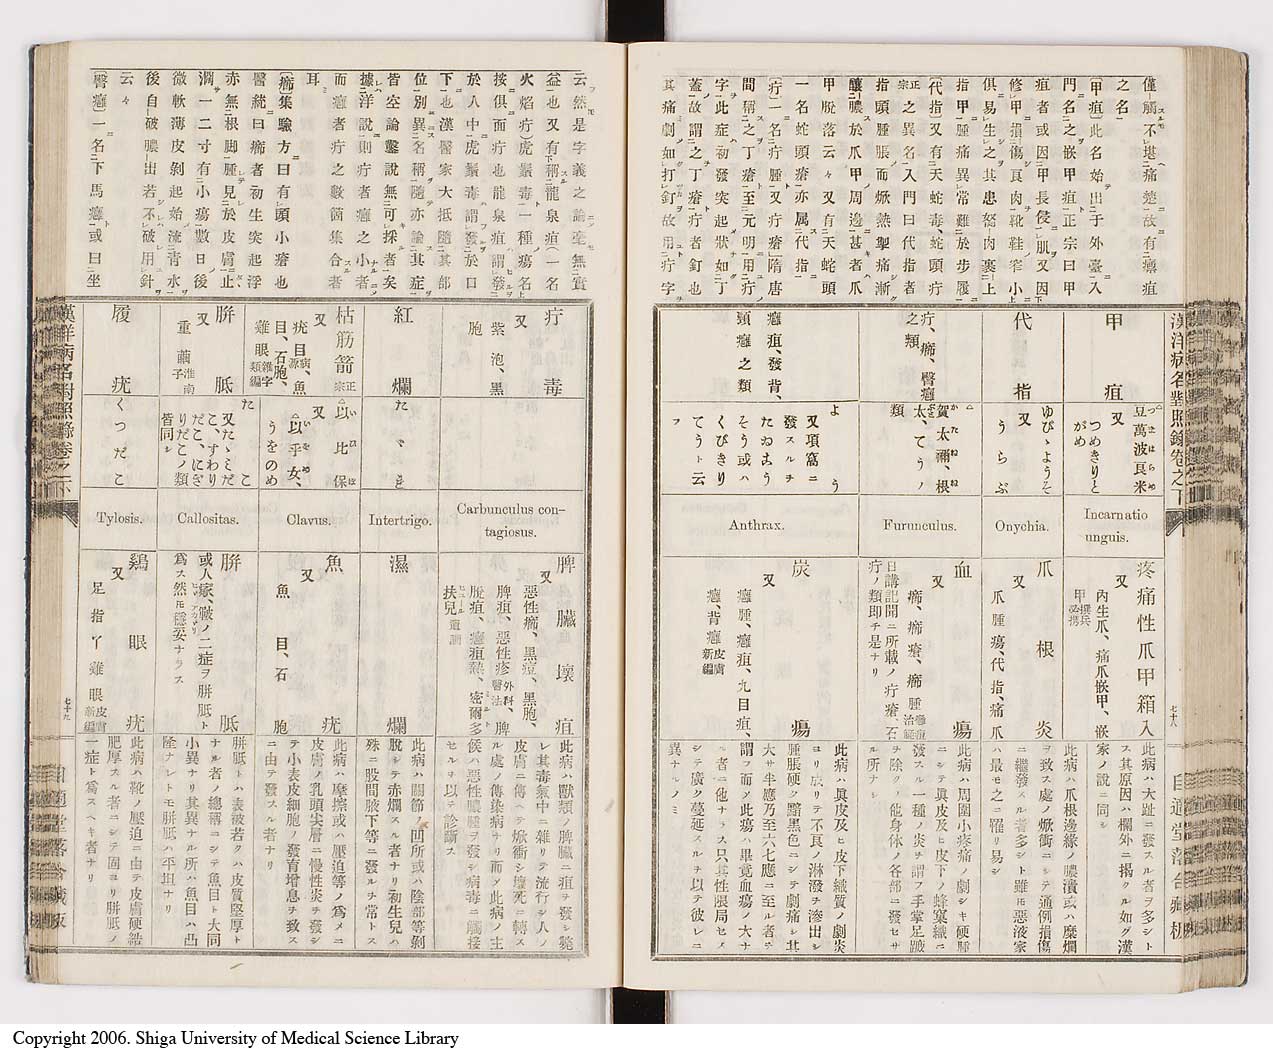 僅ニ觸ルヽモ不堪ヘ痛楚ニ故ニ有瘭疽
之名一
〔甲疽〕此名始テ出于外臺ニ入
門名之ヲ嵌甲疽ト正宗曰甲
疽者或因甲長侵肌ヲ又因
修甲ヲ損傷シ良肉ヲ靴鞋窄小
俱ニ易生之ヲ其患怒肉裹上
指甲ヲ腫痛異常難於步履
〔代指〕又有天蛇毒、蛇頭疔
正宗之異名入門曰代指者
指頭腫脹而焮熱掣痛漸
釀膿ヲ於爪甲周邊甚者爪
甲脫落云々又有天蛇頭
一名蛇頭瘡亦属代指
〔疔〕一名疔腫又疔瘡隋唐
間稱之丁瘡至元明用疔
字此症初發突起狀如丁
蓋ヲ故謂之丁瘡疔者釘也
其痛ミ劇如打釘故用疔字
甲疽
代指
疔、癤、臀癰之類
癰疽、發背、頸癰之類
豆萬波良米 又 つめきりとがめ
ゆびゝようそ 又 うらぶ
賀太禰、根太、てうノ類
よう 又項窩ニ發スルヲ
くびきり
てうト云フ
Incarnatio unguis.
Onychia.
Furunculus.
Anthrax.
疼痛性爪甲箱入 又 內生爪、痛爪嵌甲、嵌甲
爪根炎 又 爪腫瘍、代指、痛爪
血瘍 又 癤、癤瘡、癤腫
日講記聞ニ所載ノ疔瘡、石疔ノ類卽チ是ナリ
炭瘍 又 癰腫、癰疽、九目疽、癰、背癰皮膚新編
此病ハ大趾ニ發スル者ヲ多シトス其原因ハ欄外ニ揭クル如グ漢家ノ說ニ同シ
此病ハ爪根邊緣ノ膿潰或ハ糜爛ヲ致ス處ノ焮衝ニシテ通例損傷ニ繼發スル者多シト雖モ惡液家ハ最モ之ニ罹リ易シ
此病ハ周圍小疼痛ノ劇シキ硬腫ニシテ眞皮及ヒ皮下ノ蜂窠織ニ發スル一種ノ炎ヲ謂フ手掌足蹠ヲ除クノ他身体ノ各部ニ發セサル所ナシ
此病ハ眞皮及ヒ皮下織質ノ劇炎ヨリ成リテ不良ノ淋潑ヲ滲出シ腫脹硬ク黯黑色ニシテ劇痛シ其大サ半應乃至六七應ニ至ル者ヲ謂フ而ノ此瘍ハ畢竟血瘍ノ大ナル者ニ他ナラス只其性脹局セスシテ廣ク蔓延スルヲ以テ彼レニ異ナルノミ
漢洋病名對照錄卷之下
七十八
云然是字義之論毫無實
益也又有稱龍泉疽一名
火焰疔虎鬚毒一種ノ瘍名
按俱ニ面疔也龍泉疽ハ謂發
於人中ニ虎鬚毒謂發於口
下ニ也漢醫家大抵隨其部
位別異名稱ヲ隨亦論其症
皆空論鑿說無可採者矣
據洋說則疔者癰之小者
而癰者疔之數箇集合者
耳
〔癤〕集驗方曰有頭小瘡也
醫統曰癤者初生突起浮
赤無根脚腫見於皮膚止
濶一二寸有小瘍數日後
微軟薄皮剝起始流靑水
後自破膿出若不破用針
云々
〔臀癰〕一名下馬癰或曰坐
疔毒 又 紫泡、黑胞
紅爛
枯筋箭正宗 又 疣目病源、魚目、石胞、雞眼雜字類編
胼胝 又 重繭淮南子
履疣
たゝれ
以比保 又 以乎女、うをのめ
たこ 又たゝみだこ、すわりだこ、にぎりだこノ類皆同シ
くつだこ
Carbunculus contagiosus.
Intertrigo.
Clavus.
Callositas.
Tylosis.
脾臟壞疽 又 惡性癤、黑痘、黑胞、脾疽、惡性疹外科醫法、脾脫疽、癰疽熱、密爾多扶兒
濕爛
魚疣 又 魚目、石胞
胼胝 或人家皸ノ二症ヲ胼胝ト爲ス然モ穩妥ナラス
鷄眼疣 又 足指丫雞眼皮膚新編
此病ハ獸類ノ脾臟ニ疽ヲ發シ斃レ其毒氣中ニ雜リテ流行シ人ノ皮膚ニ傳ヘテ焮衝シ壞死ニ轉スル處ノ傳染病ナリ而ノ此病ノ主候ハ惡性膿腫ヲ發シ病毒ニ觸接セルヲ以テ診斷ス
此病ハ關節ノ凹所或ハ陰部等剝脫シテ赤爛スル者ナリ初生兒ハ殊ニ股間腋下等ニ發スルヲ常トス
此病ハ摩擦或ハ壓迫等ノ爲メニ皮膚ノ乳頭尖層ニ慢性炎ヲ發シテ小表皮細胞ノ發育增息ヲ致スニ由テ發スル者ナリ
胼胝ト ハ表被若クハ皮質堅厚トナル者ノ總稱ニシテ魚目ト大同小異ナリ其異ナル所ハ魚目ハ凸隆ナレトモ胼胝ハ平坦ナリ
此病ハ靴ノ壓迫ニ由テ皮膚硬結肥厚スル者ニシテ固ヨリ胼胝ノ一症ト爲スヘキ者ナリ
漢洋病名對照錄卷之下
七十九
Copyright 2006. Shiga University of Medical Science Library